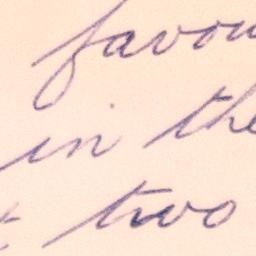 favou
in the
t two